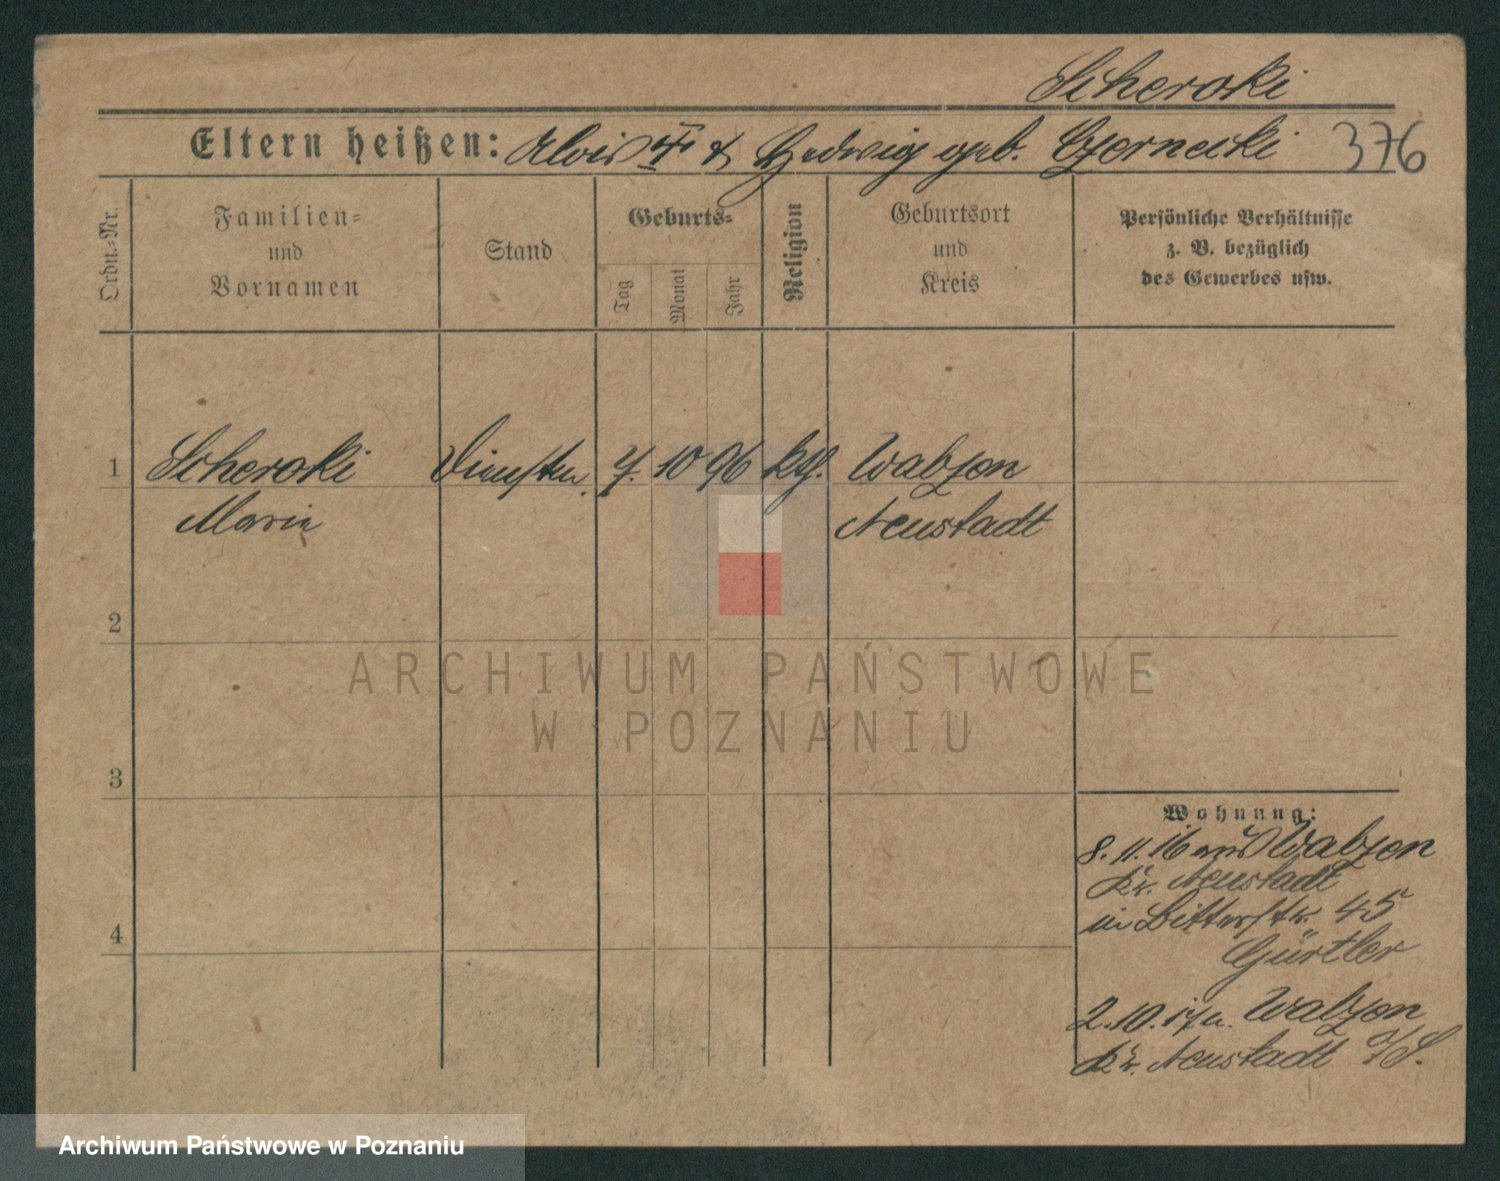 Scheroki
Eltern heißen: Alois † & Hedwig geb. Czernecki 376
Ordn.-Nr.
Familien-
und
Vornamen
Stand
Geburts-
Tag
Monat
Jahr
Religion
Geburtsort
und
Kreis
Persönliche Verhältnisse
z. B. bezüglich
des Gewerbes usw.
1 Scheroki 7. 10 96 kth. Wabzon
Maria Neustadt
2
ARCHIWUM PAŃSTWOWE
W POZNANIU
3
Wohnung:
8. 11. 16 aus Wabzon
Kr. Neustadt
in Bitterstr. 45
Gürtler
4
2. 10. 17 n. Wabzon
Kr. Neustadt
Archiwum Państwowe w Poznaniu